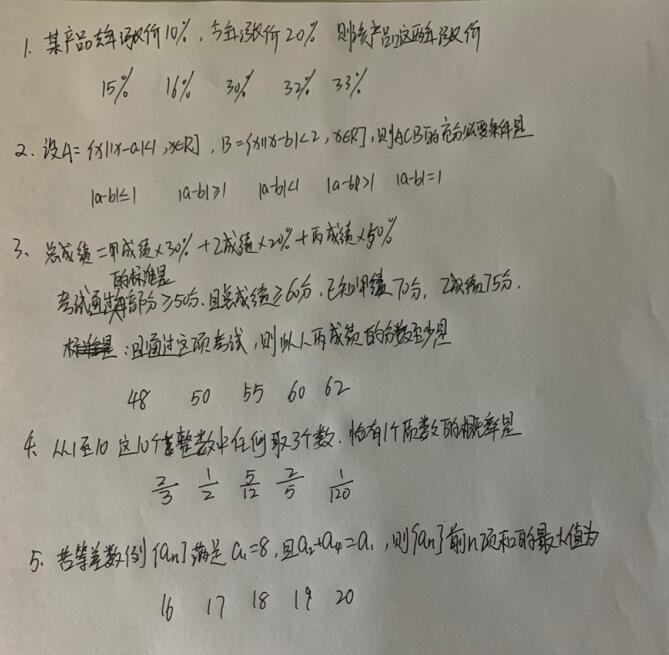 1. 某产品去年涨价10%, 今年涨价20% 则该产品这两年涨价
15% 16% 30% 32% 33%
2. 设A={x||x-a|<1,x∈R}, B={x||x-b|<2,x∈R},则A⊂B的充分必要条件是
|a-b|≤1 |a-b|≥1 |a-b|<1 |a-b|>1 |a-b|=1
3. 总成绩=甲成绩×30%+乙成绩×20%+丙成绩×50%
的标准是
考试通过每部分≥50分,且总成绩≥60分,已知甲成绩70分, 乙成绩75分,
:且通过这项考试,则此人丙成绩的分数至少是
48 50 55 60 62
4. 从1至10这10个整数中任何取3个数.恰有1个质数的概率是
2/3 1/2 5/12 2/5 1/120
5. 若等差数列{an}满足a1=8,且a2+a4=a1,则{an}前n项和的最大值为
16 17 18 19 20